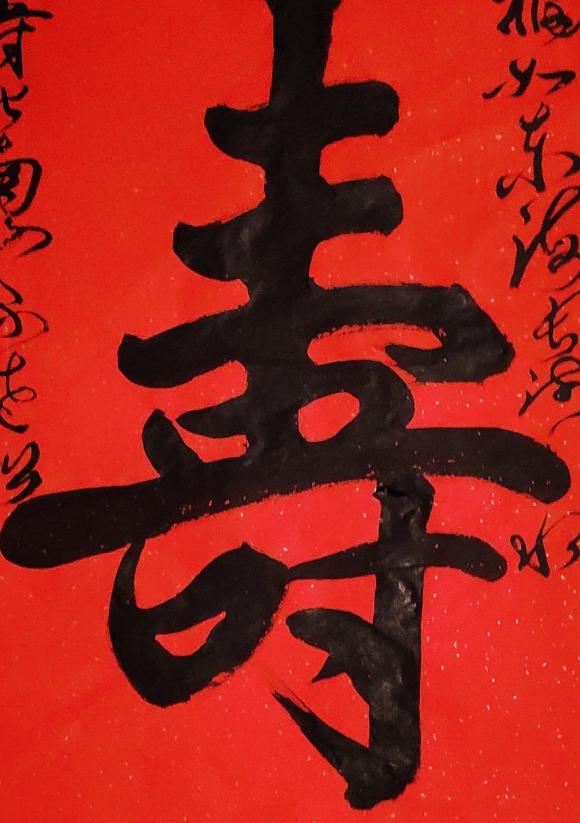 福如东海长流水
壽
寿比南山不老松